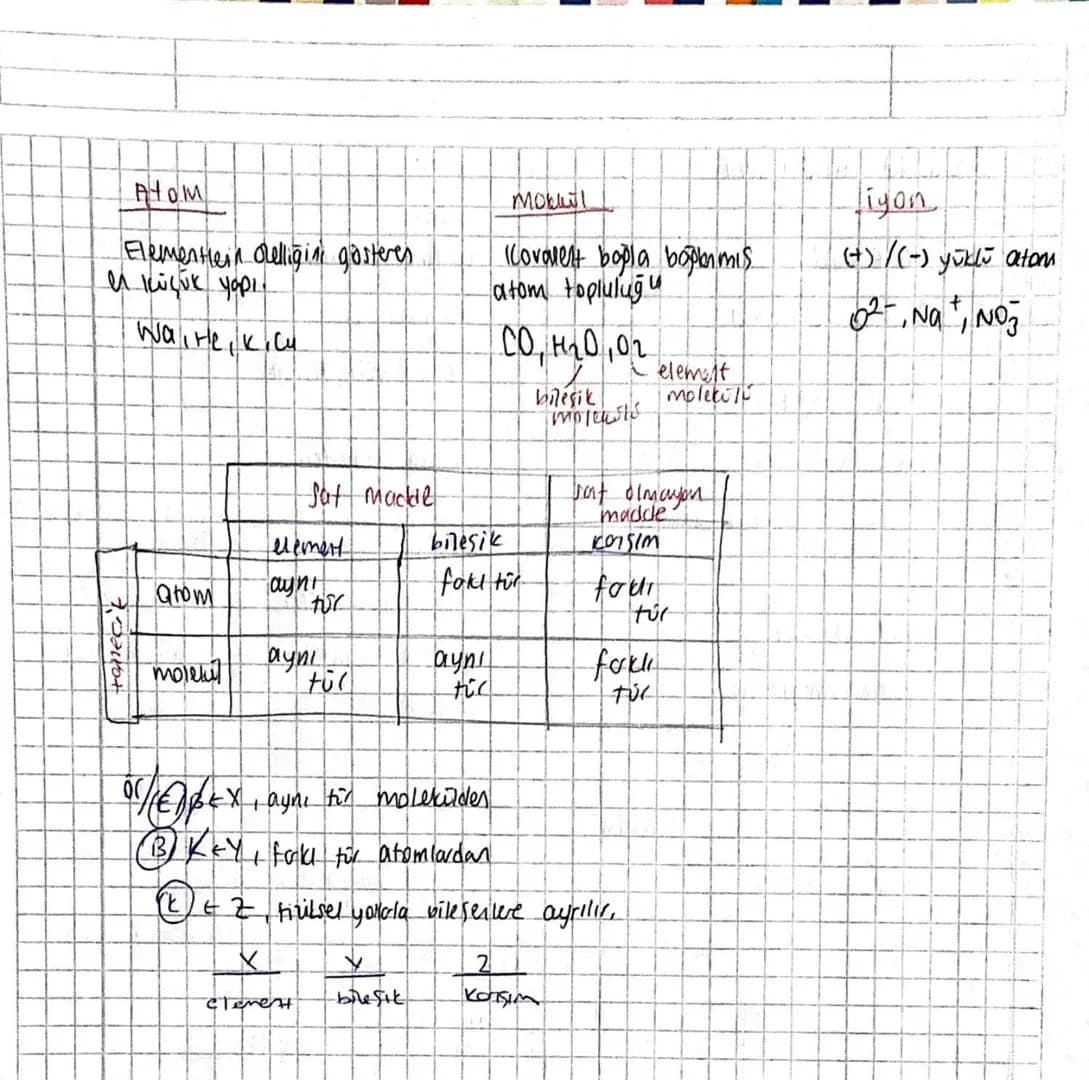 Atom
Elementlerin özelliğini gösteren
en küçük yapı.
Na, He, K, Cu
Molekül
Kovalent bağla bağlanmış
atom topluluğu
CO, H₂O, O₂
bileşik
molekülü
element
molekülü
iyon
(+) / (-) yüklü atom
O²⁻, Na⁺, NO₃⁻
Saf madde
saf olmayan
madde
element
bileşik
karışım
tanecik
atom
aynı
tür
farklı tür
farklı
tür
molekül
aynı
tür
aynı
tür
farklı
tür
ör/ (E) B ← X, aynı tür molekülden
(B) K ← Y, farklı tür atomlardan
(K) ← Z, fiziksel yollarla bileşenlere ayrılır.
X
Y
Z
element
bileşik
karışım